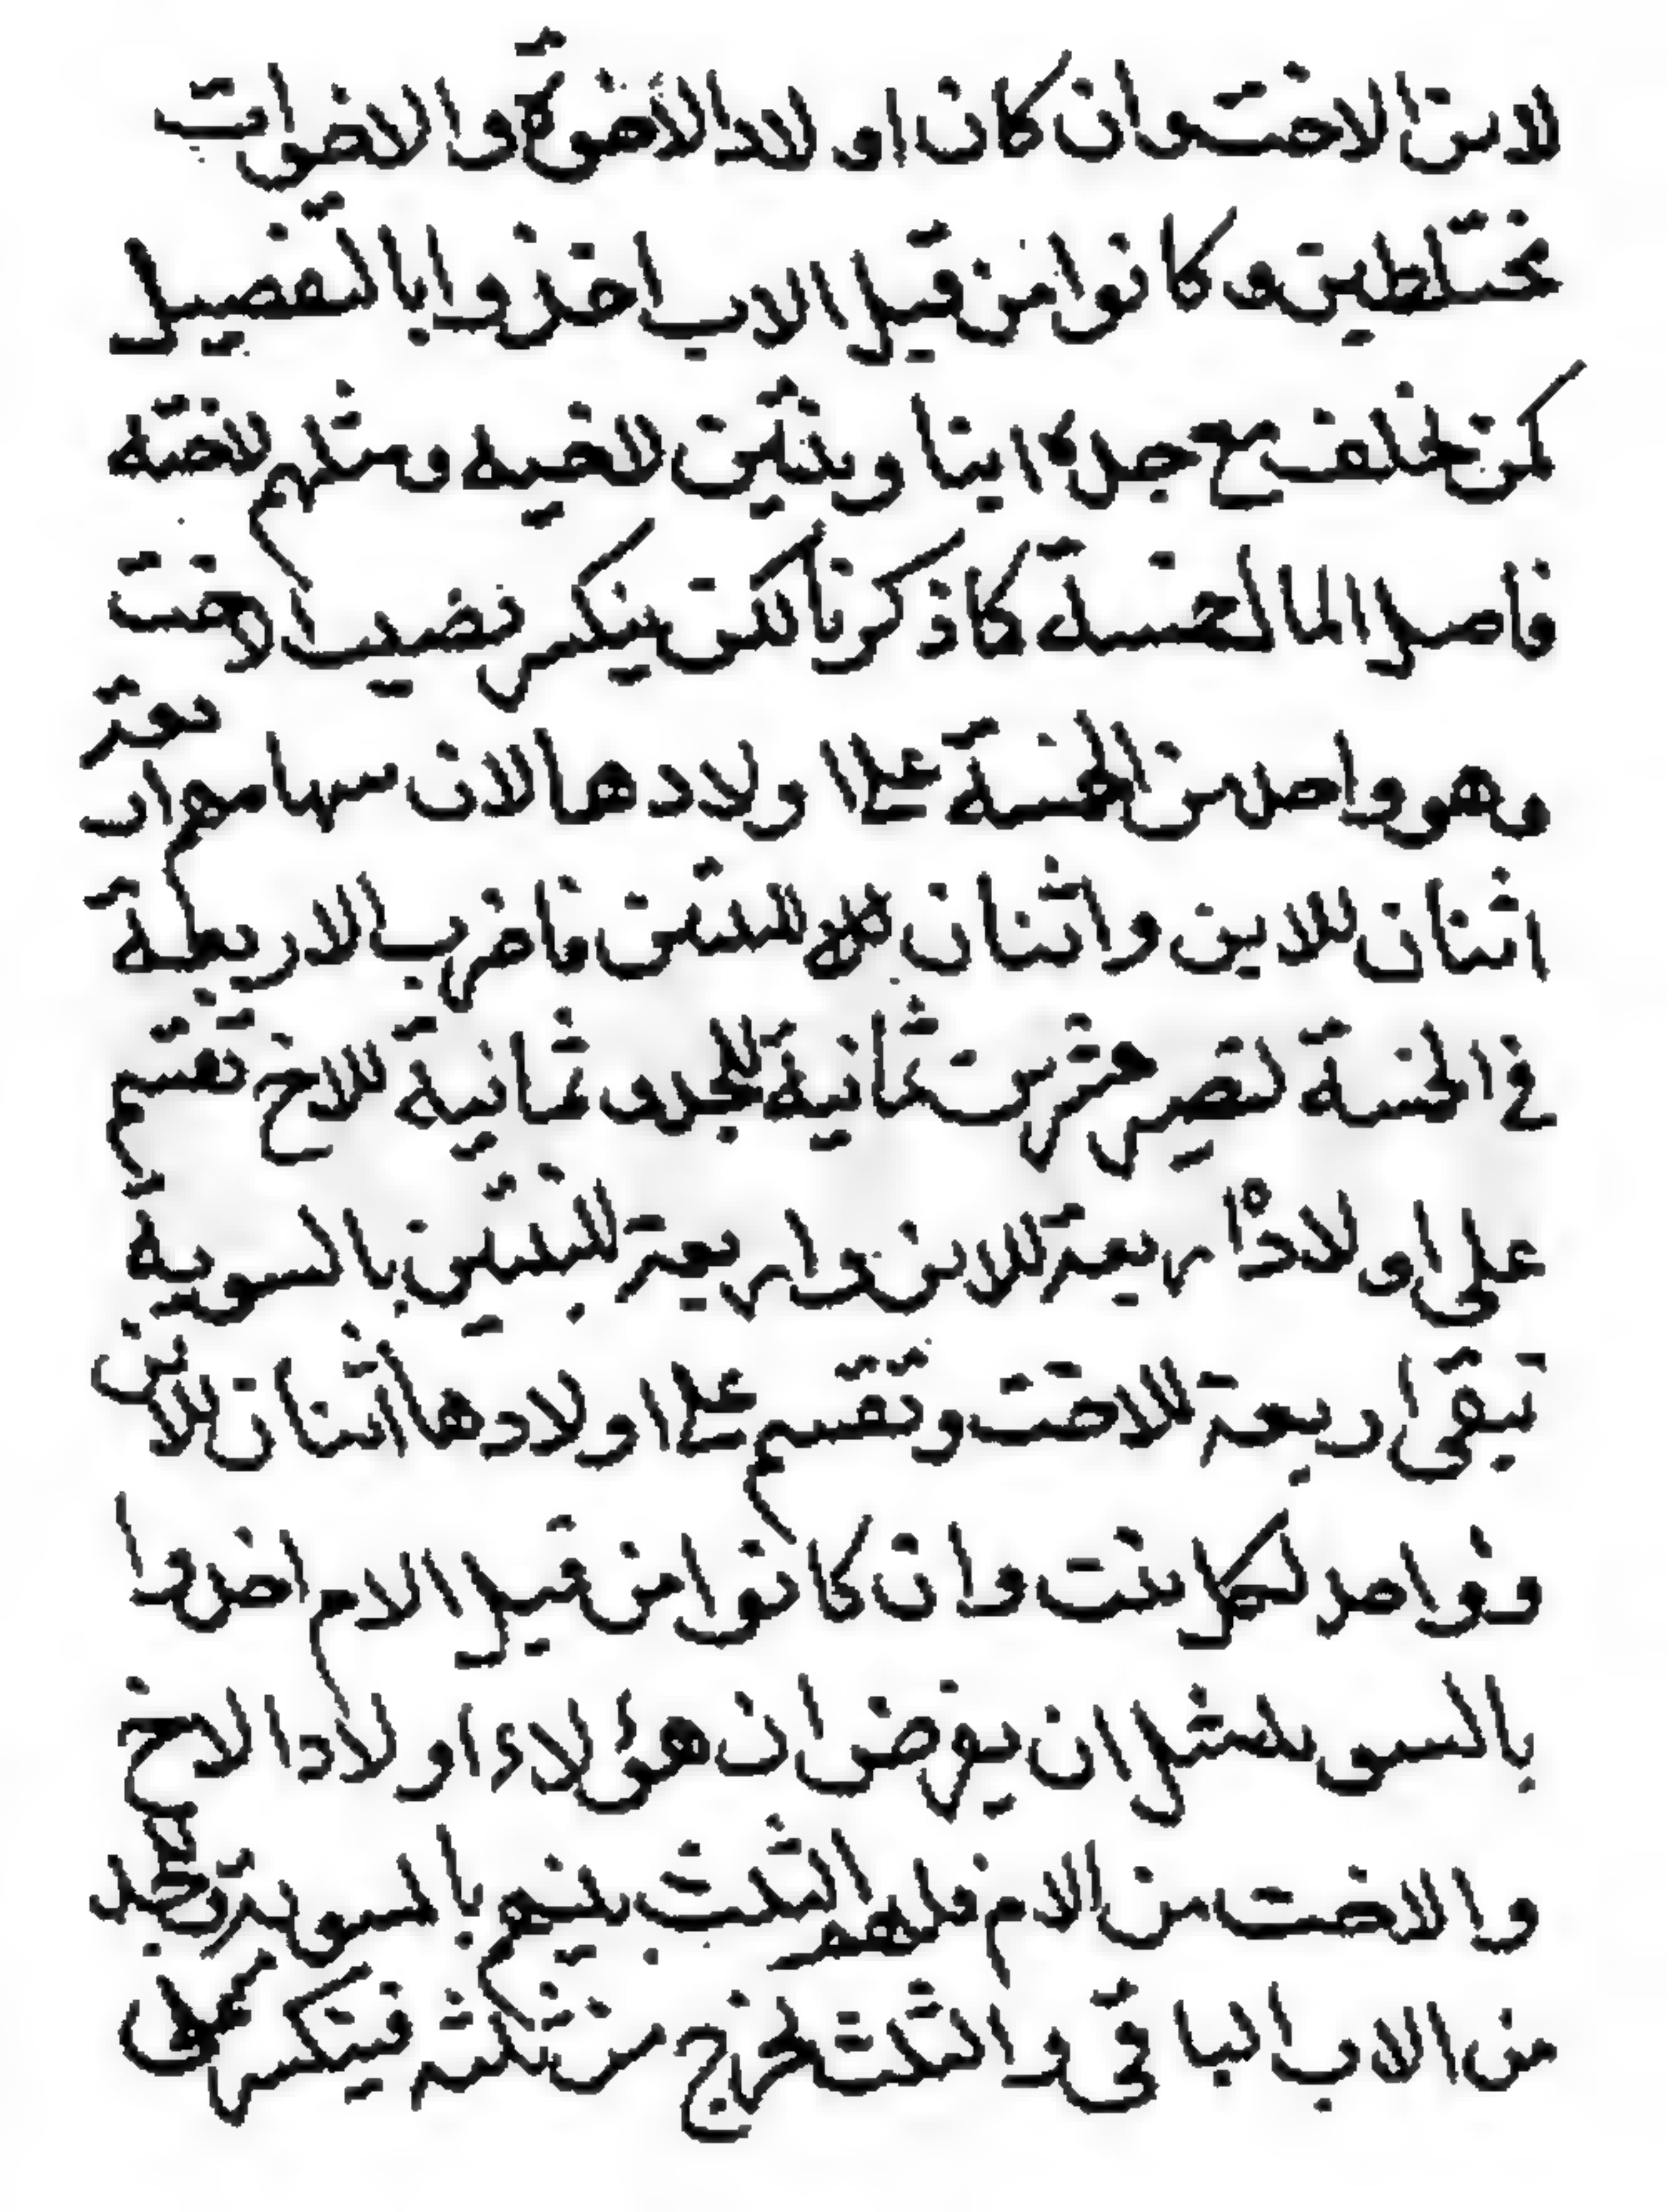 لابن الاخت وان كان اولاد الاخوة والاخوات
مختلطين وكانوا من قبل الاب اخذوا بالتفصيل
كمن خلف مع جده ابنا وبنتين لاخيه ومثلهم لاخته
فاصل المال خمسة كما ذكرنا لكن ينكسر نصيب الاخت
وهو واحد من الخمسة على اولادها لان سهامهم اربعة
اثنان للابن واثنان للبنتين فاضرب الاربعة
في الخمسة تصير عشرين ثمانية للجد وثمانية للاخ تقسم
على اولاده اربعة للابن واربعة للبنتين بالسوية
تبقى اربعة للاخت وتقسم على اولادها اثنان للابن
وواحد لكل بنت وان كانوا من قبل الام اخذوا
بالسوية مثل ان يفرض ان هؤلاء اولاد الاخ
والاخت من الام فلهم الثلث بينهم بالسوية وللجد
من الاب الباقي والثلث مخرج من ثلثة فينكسر على